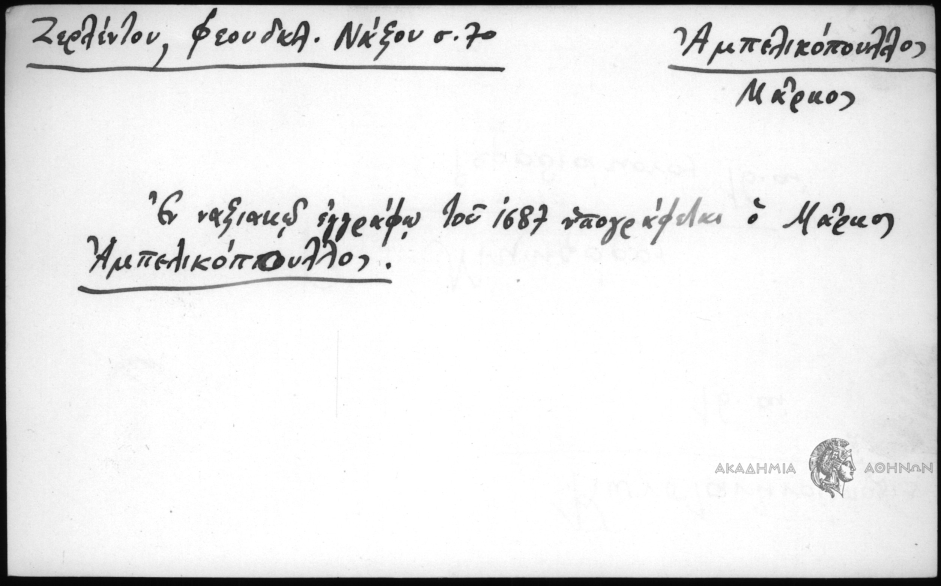 Ζερλέντου, Φεουδαλ. Νάξου σ. 70
Ἀμπελικόπουλλος
Μᾶρκος
Ἐν ναξιακῷ ἐγγράφῳ τοῦ 1687 ὑπογράφεται ὁ Μᾶρκος
Ἀμπελικόπουλλος.
ΑΚΑΔΗΜΙΑ ΑΘΗΝΩΝ